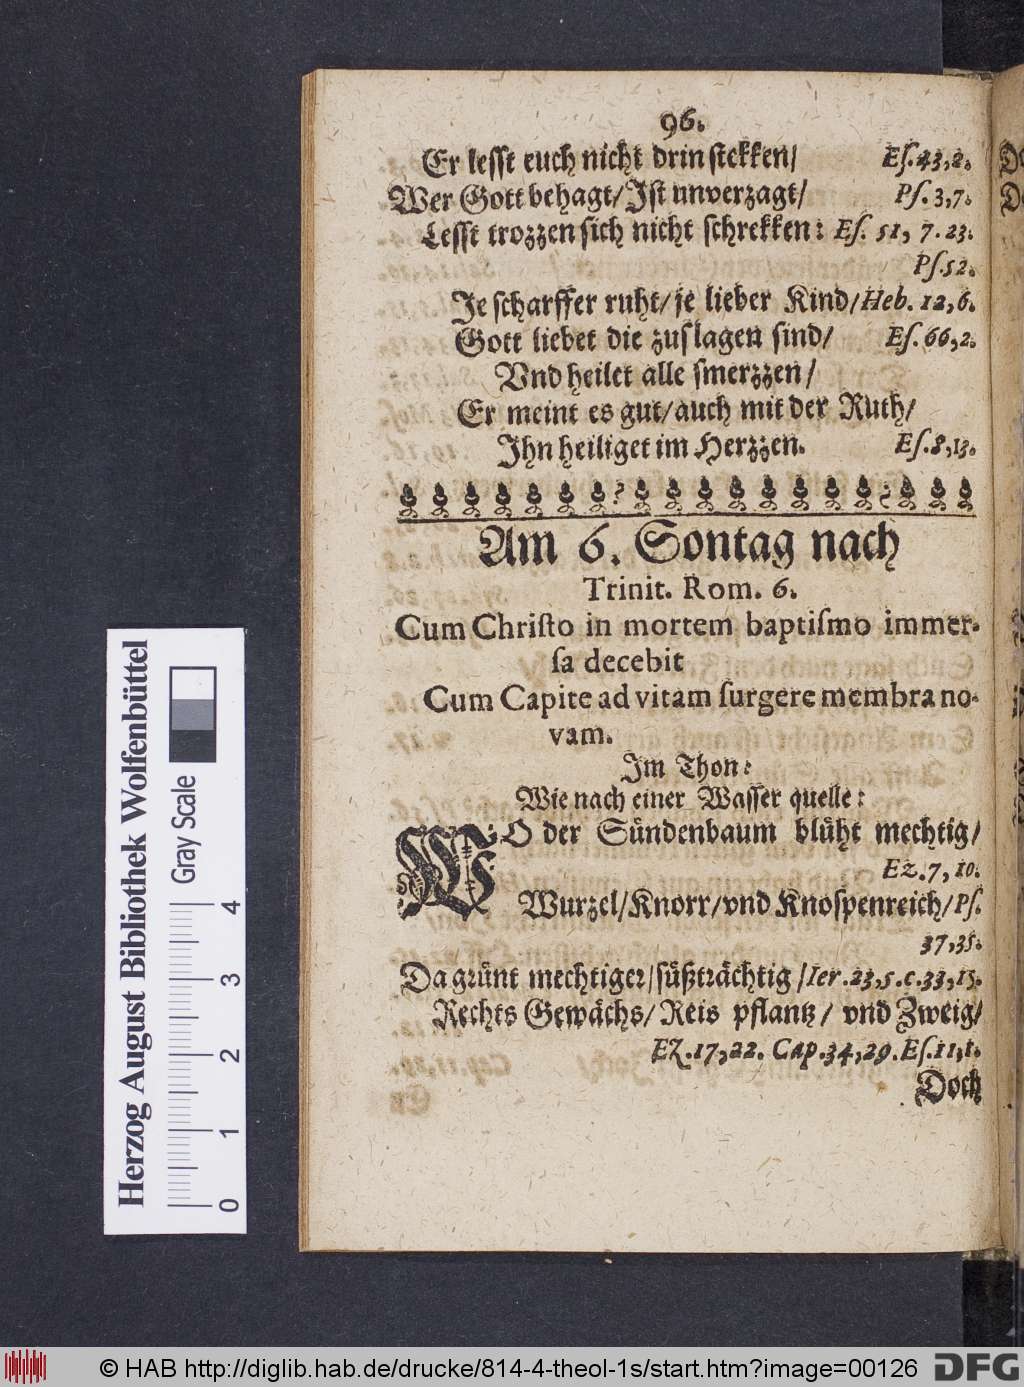 96.
Er lesst euch nicht drin stekken/ Es. 43,2.
Wer Gott behagt/Ist unverzagt/ Ps. 3,7.
Lesst trozzen sich nicht schrekken: Es. 51, 7.23.
Ps.52.
Je scharffer ruht/je lieber Kind/Heb. 12,6.
Gott liebet die zuslagen sind/ Es. 66,2.
Vnd heilet alle smerzzen/
Er meint es gut/auch mit der Ruth/
Ihn heiliget im Herzzen. Es.8,13.
Am 6. Sontag nach
Trinit. Rom. 6.
Cum Christo in mortem baptismo immer-
sa decebit
Cum Capite ad vitam surgere membra no-
vam.
Im Thon:
Wie nach einer Wasser quelle:
WO der Sündenbaum blüht mechtig/
Ez.7,10.
Wurzel/Knorr/vnd Knospenreich/Ps.
37,35.
Da grünt mechtiger/süßträchtig/Ier.23,5.c.33,15.
Rechts Gewächs/Reis pflantz/ vnd Zweig/
EZ.17,22. Cap.34,29.Es.11,1.
Doch
Herzog August Bibliothek Wolfenbüttel
Gray Scale
0 1 2 3 4
© HAB http://diglib.hab.de/drucke/814-4-theol-1s/start.htm?image=00126
DFG